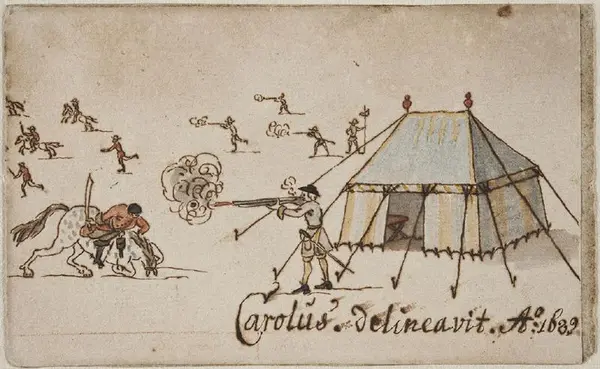 Carolus. delineavit. Aº. 1689